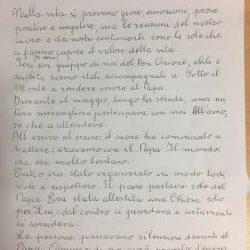 Nella vita si provano gioie, emozioni, prove
positive e negative, ma le reazioni del nostro
cuore e dei nostri sentimenti sono le sole che
ci fanno capire il valore della vita.
Ieri un gruppo di noi del Don Orione, abili e
disabili, siamo stati accompagnati a Sotto il
Monte a rendere onore al Papa
Durante il viaggio, lungo la strada, una na
tura meravigliosa partecipava, con noi all'amo
re che ci attendeva.
All'arrivo al paese, il cuore ha cominciato a
battere: eravamo con il Papa. Il mondo,
ora, era molto lontano.
Tutto era stato organizzato in modo lode
vole e rispettoso. Il paese parlava solo del
Papa. Era stata allestita una Chiesa solo
per Lui, dal centro ci guardava e certamente
ci sorrideva.
Le persone passavano silenziose davanti al
Papa